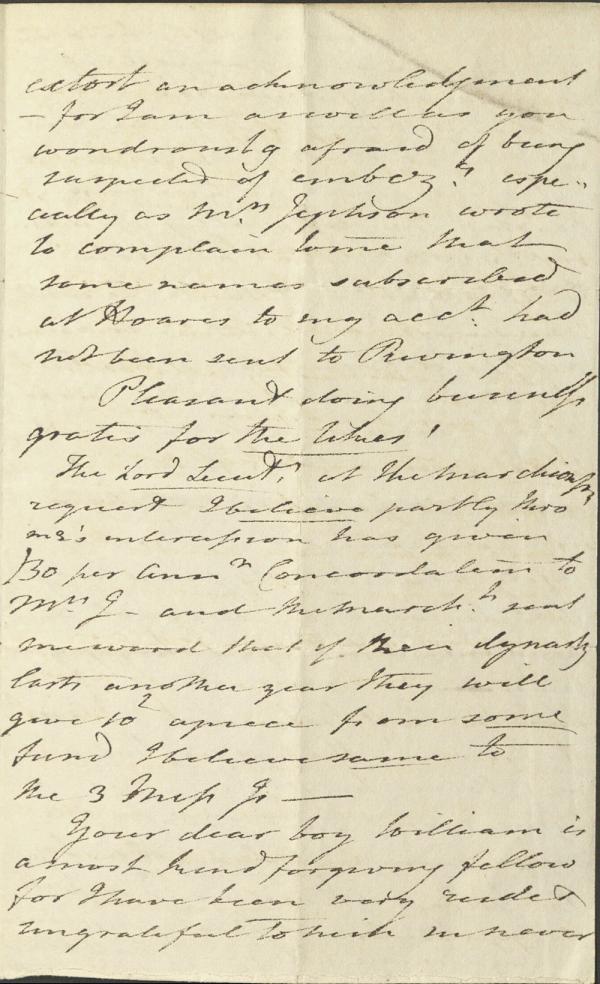 extort an acknowledgment
– for I am as well as you
wondrously afraid of being
suspected of embezt. espe-
cially as Mrs. Jephson wrote
to complain to me that
some names subscribed
at Hoares to my acct. had
not been sent to Rivington
Pleasant doing business
gratis for the likes!
The Lord Lieut. at the marchioness's
request I believe partly thro
me's intercession has given
£30 per Annm Concordatum to
Mrs J – and the March.ss sent
me word that if their dynasty
lasts another year they will
give 10£ apiece from some
fund I believe same to
the 3 Miss Js –
Your dear boy William is
a most kind forgiving fellow
for I have been very rude &
ungrateful to him in never